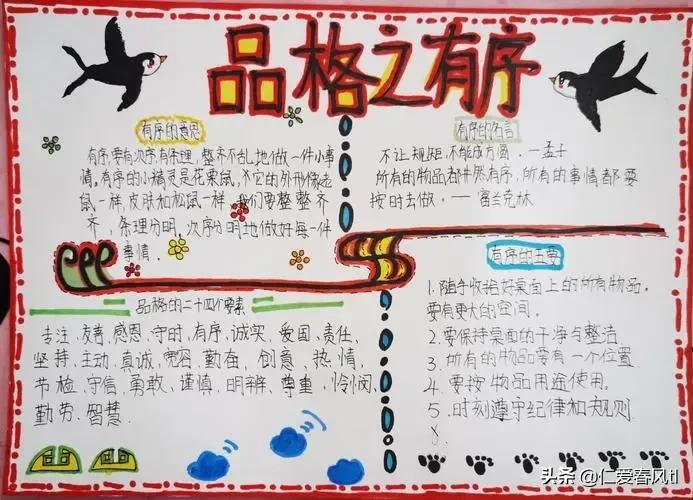 品格之有序
有序的意思
有序,要有次序,有条理,整齐不乱地做一件小事
情。有序的小精灵是花栗鼠,它的外形像老
鼠一样,皮肤和松鼠一样,我们要整整齐
齐,条理分明,次序分明地做好每一件
事情.
有序的名言
不让规矩,不能成方圆.—孟子
所有的物品都井然有序,所有的事情都要
按时去做.—富兰克林
有序的五要
1.随手收拾好桌面上的所有物品.
要有更大的空间.
2.要保持桌面的干净与整洁
3.所有的物品要有一个位置
4.要按物品用途使用。
5.时刻遵守纪律和规则
品格的二十四个要素
专注、友善、感恩、守时、有序、诚实、爱国、责任、
坚持、主动、真诚、宽容、勤奋、创意、热情、
节检、守信、勇敢、谨慎、明辨、尊重、怜悯、
勤劳、智慧.
头条 @仁爱春风tl